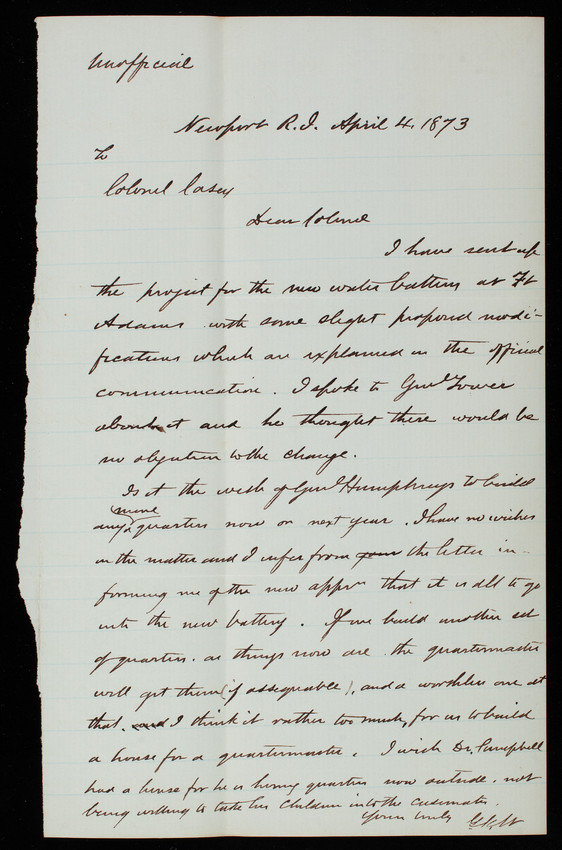 Unofficial
Newport R.I. April 4, 1873
To
Colonel Casey
Dear Colonel
I have sent up
the project for the new water battery at Ft
Adams with some slight proposed modi-
fications which are explained in the official
communication. I spoke to Genl Tower
about it and he thought there would be
no objection to the change.
Is it the wish of Genl Humphreys to build
more
any quarters now or next year. I have no wishes
in the matter and I infer from the letter in-
forming me of the new appn that it is all to go
into the new battery. If we build another set
of quarters. as things now are the quartermaster
will get them (if assignable), and a worthless one at
that. and I think it rather too much, for us to build
a house for a quartermaster. I wish Dr. Campbell
had a house for he is living quarters now outside. not
being willing to take his children into the casemates.
Yours truly G.K.W